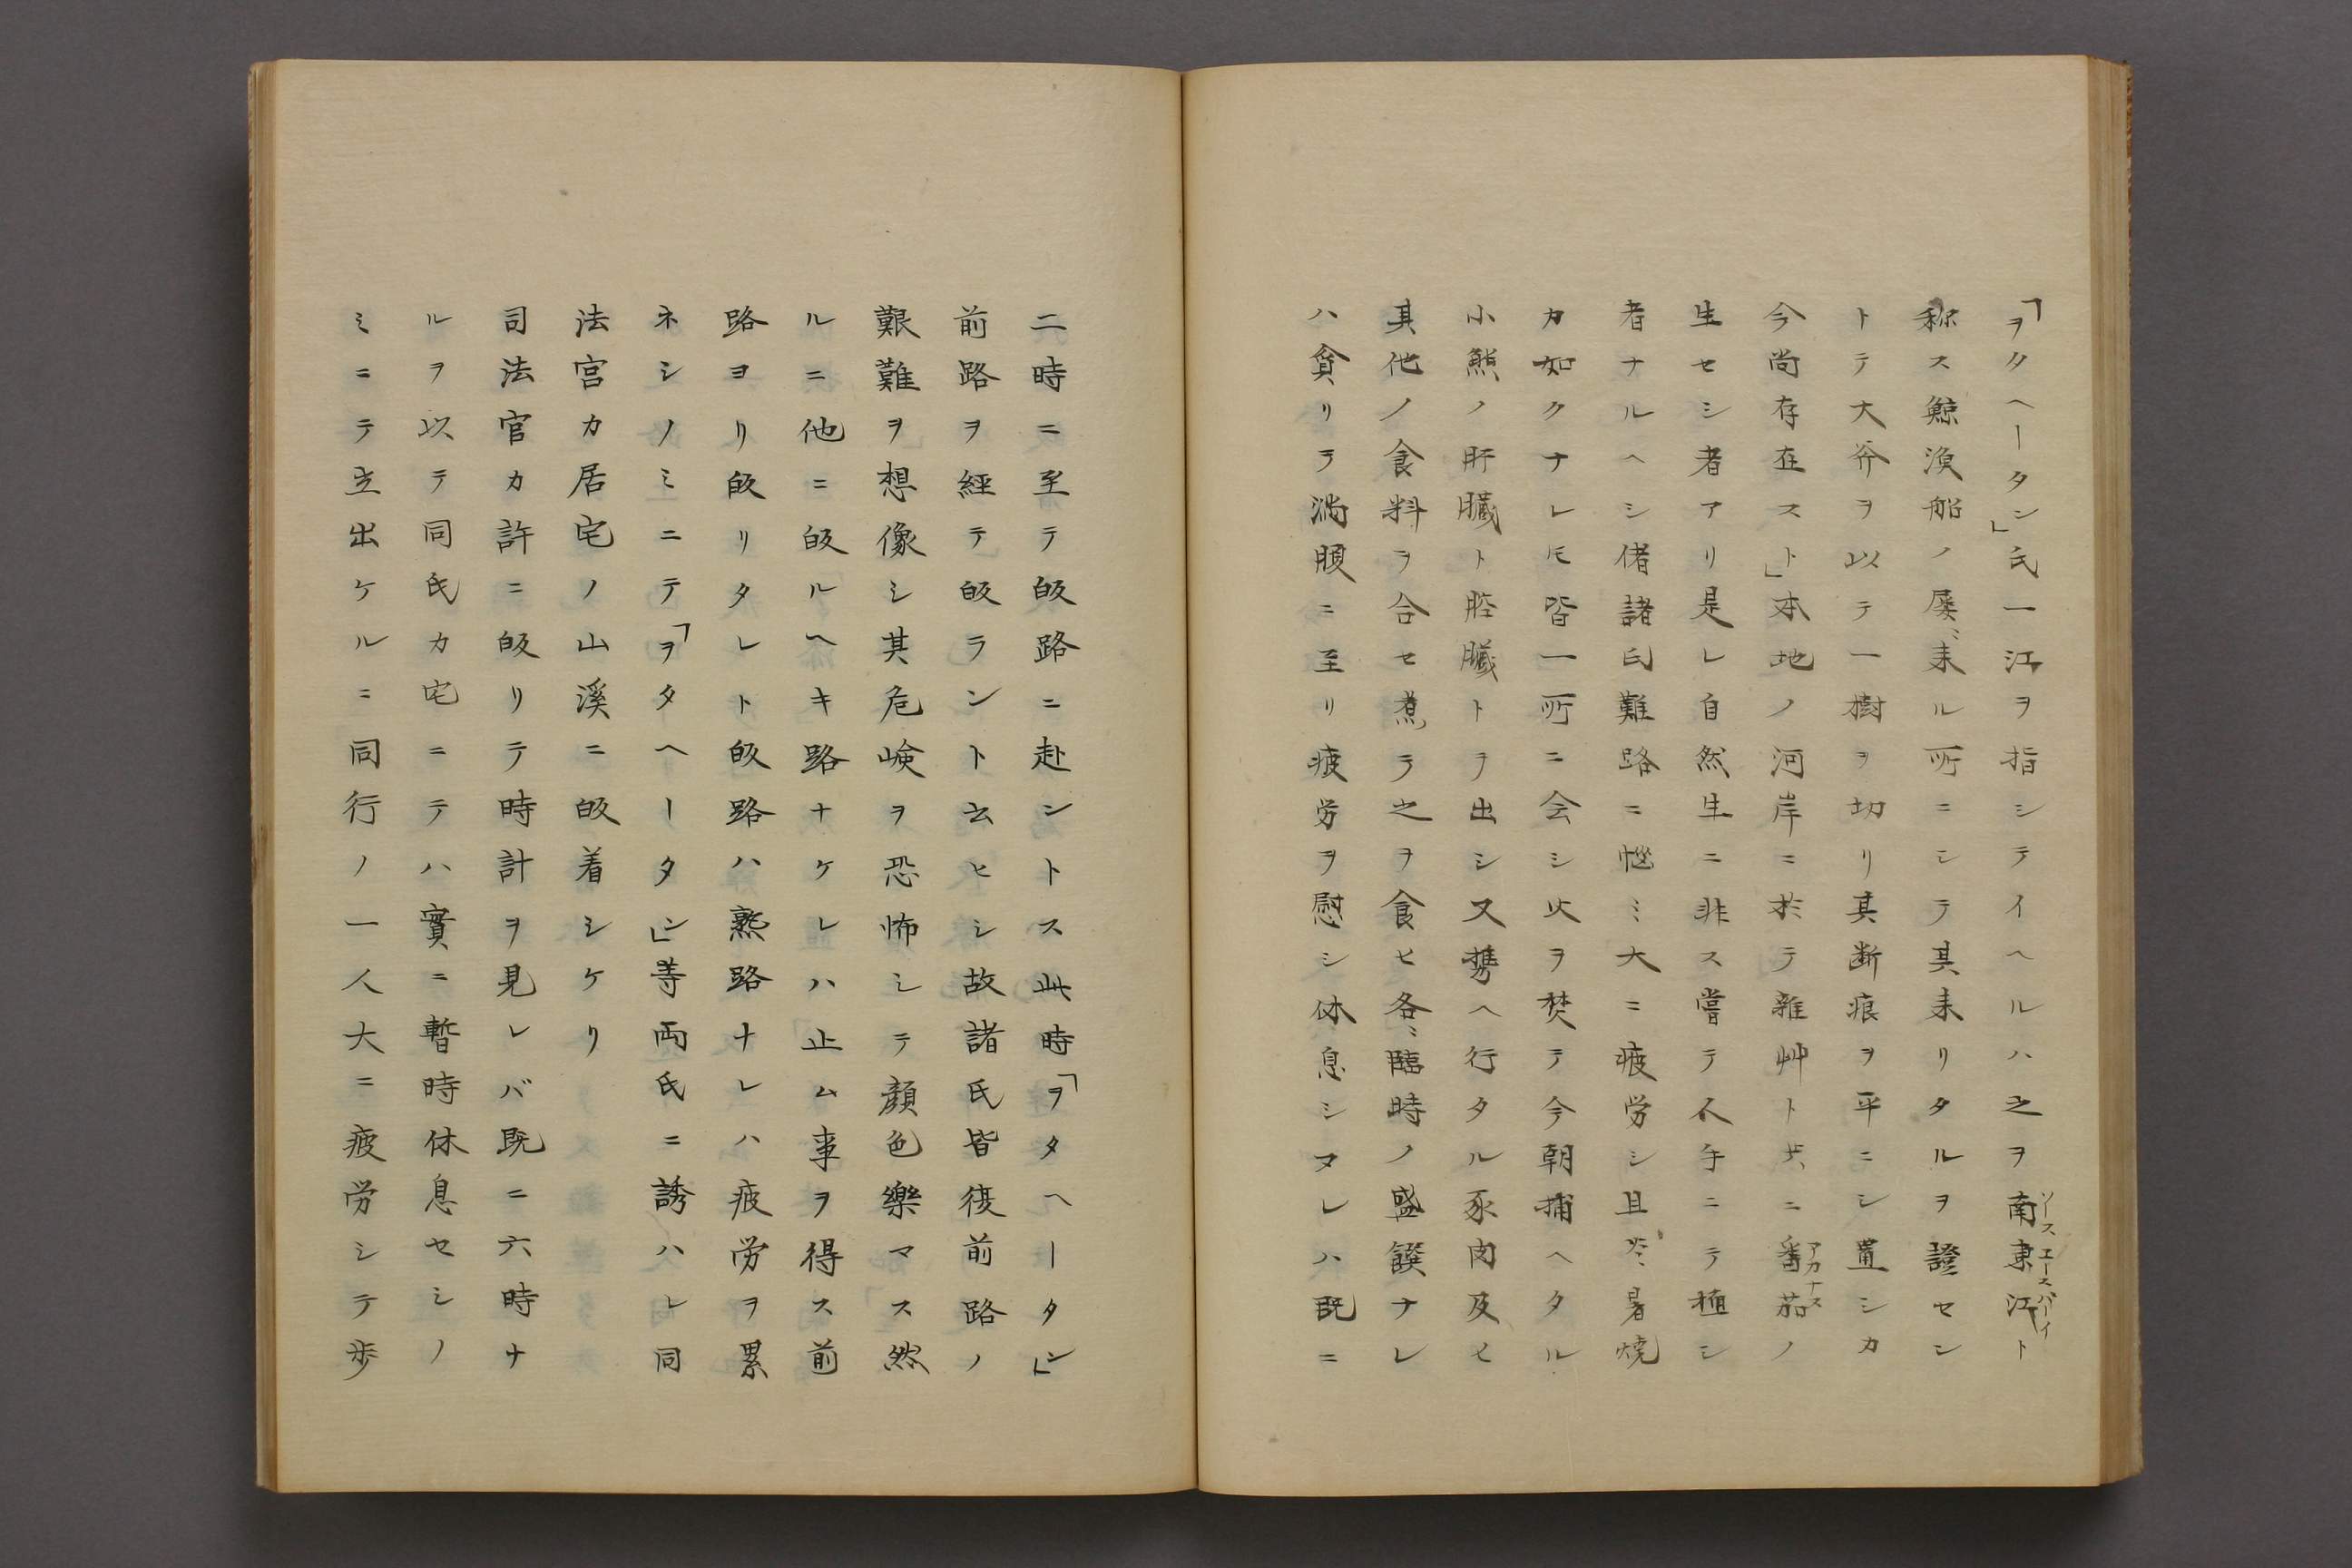 「ヲタヘータン」氏一江ヲ指シテイヘルハ之ヲ南東江ト
ソースエースバーイ
称ス鯨漁船ノ屡〻来ル所ニシテ其来リタルヲ證セン
トテ大斧ヲ以テ一樹ヲ切リ其断痕ヲ平ニシ置シカ
今尚存在スト」本地ノ河岸ニ於テ雜艸ト共ニ番茄ノ
アカナス
生セシ者アリ是レ自然生ニ非ス嘗テ人手ニテ植シ
者ナルヘシ偖諸氏難路ニ悩ミ大ニ疲労シ且ツ暑焼
カ如クナレ𪜈皆一所ニ会シ火ヲ焚テ今朝捕ヘタル
小熊ノ肝臓ト腔臓トヲ出シ又携ヘ行タル豕肉及ヒ
其他ノ食料ヲ合セ煮テ之ヲ食ヒ各〻臨時ノ盛饌ナレ
ハ貪リテ満腹ニ至リ疲労ヲ慰シ休息シヌレハ既ニ
二時ニ至テ皈路ニ赴ントス此時「ヲタヘータン」
前路ヲ經テ皈ラント云ヒシ故諸氏皆復前路ノ
艱難ヲ想像シ其危嶮ヲ恐怖シテ顔色樂マス然
ルニ他ニ皈ルヘキ路ナケレハ止ム事ヲ得ス前
路ヨリ皈リタレト皈路ハ熟路ナレハ疲労ヲ累
ネシノミニテ「ヲタヘータン」等両氏ニ誘ハレ同
法官カ居宅ノ山溪ニ皈着シケリ
司法官カ許ニ皈リテ時計ヲ見レバ既ニ六時ナ
ルヲ以テ同氏カ宅ニテハ實ニ暫時休息セシノ
ミニテ立出ケルニ同行ノ一人大ニ疲労シテ歩